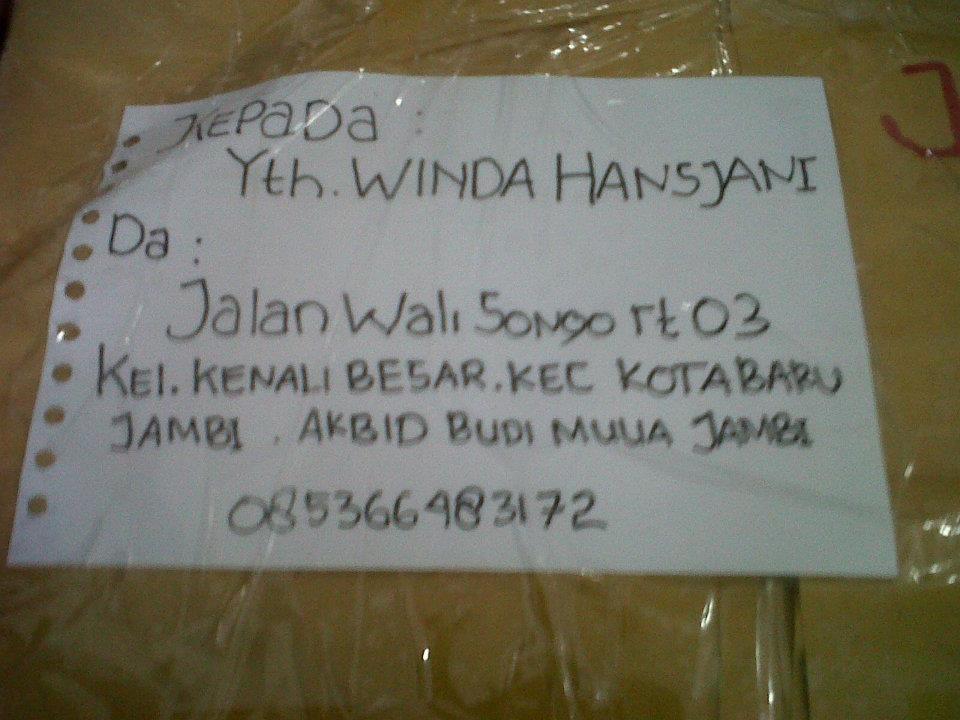 KEPADA :
Yth. WINDA HANSJANI
Da :
Jalan Wali Songo rt 03
Kel. KENALI BESAR. KEC KOTABARU
JAMBI . AKBID BUDI MULIA JAMBI
085366483172
J